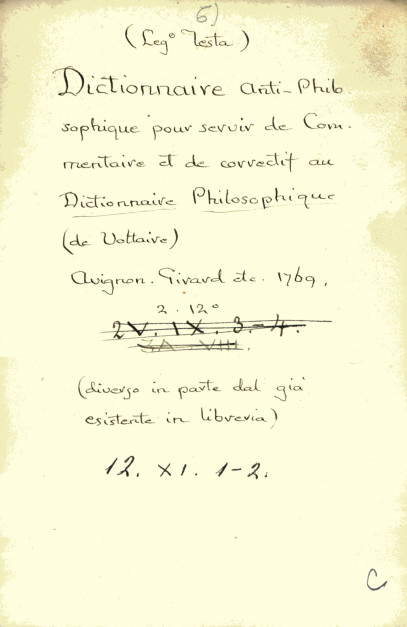 6)
(Leg° Testa)
Dictionnaire Anti-Philo
sophique pour servir de Com-
mentaire et de correctif au
Dictionnaire Philosophique
(de Voltaire)
Avignon. Girard etc. 1769,
2. 12°
2V. IX. 3.-4.
(diverso in parte dal già
esistente in libreria)
12. XI. 1-2.
C